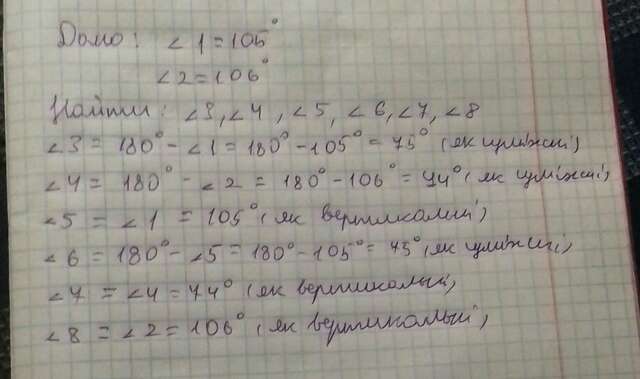 Дано: ∠1=105°
∠2=106°
Найти: ∠3, ∠4, ∠5, ∠6, ∠7, ∠8
∠3 = 180° - ∠1 = 180° - 105° = 75° (як суміжні)
∠4 = 180° - ∠2 = 180° - 106° = 74° (як суміжні)
∠5 = ∠1 = 105° (як вертикальні)
∠6 = 180° - ∠5 = 180° - 105° = 75° (як суміжні)
∠7 = ∠4 = 74° (як вертикальні)
∠8 = ∠2 = 106° (як вертикальні)